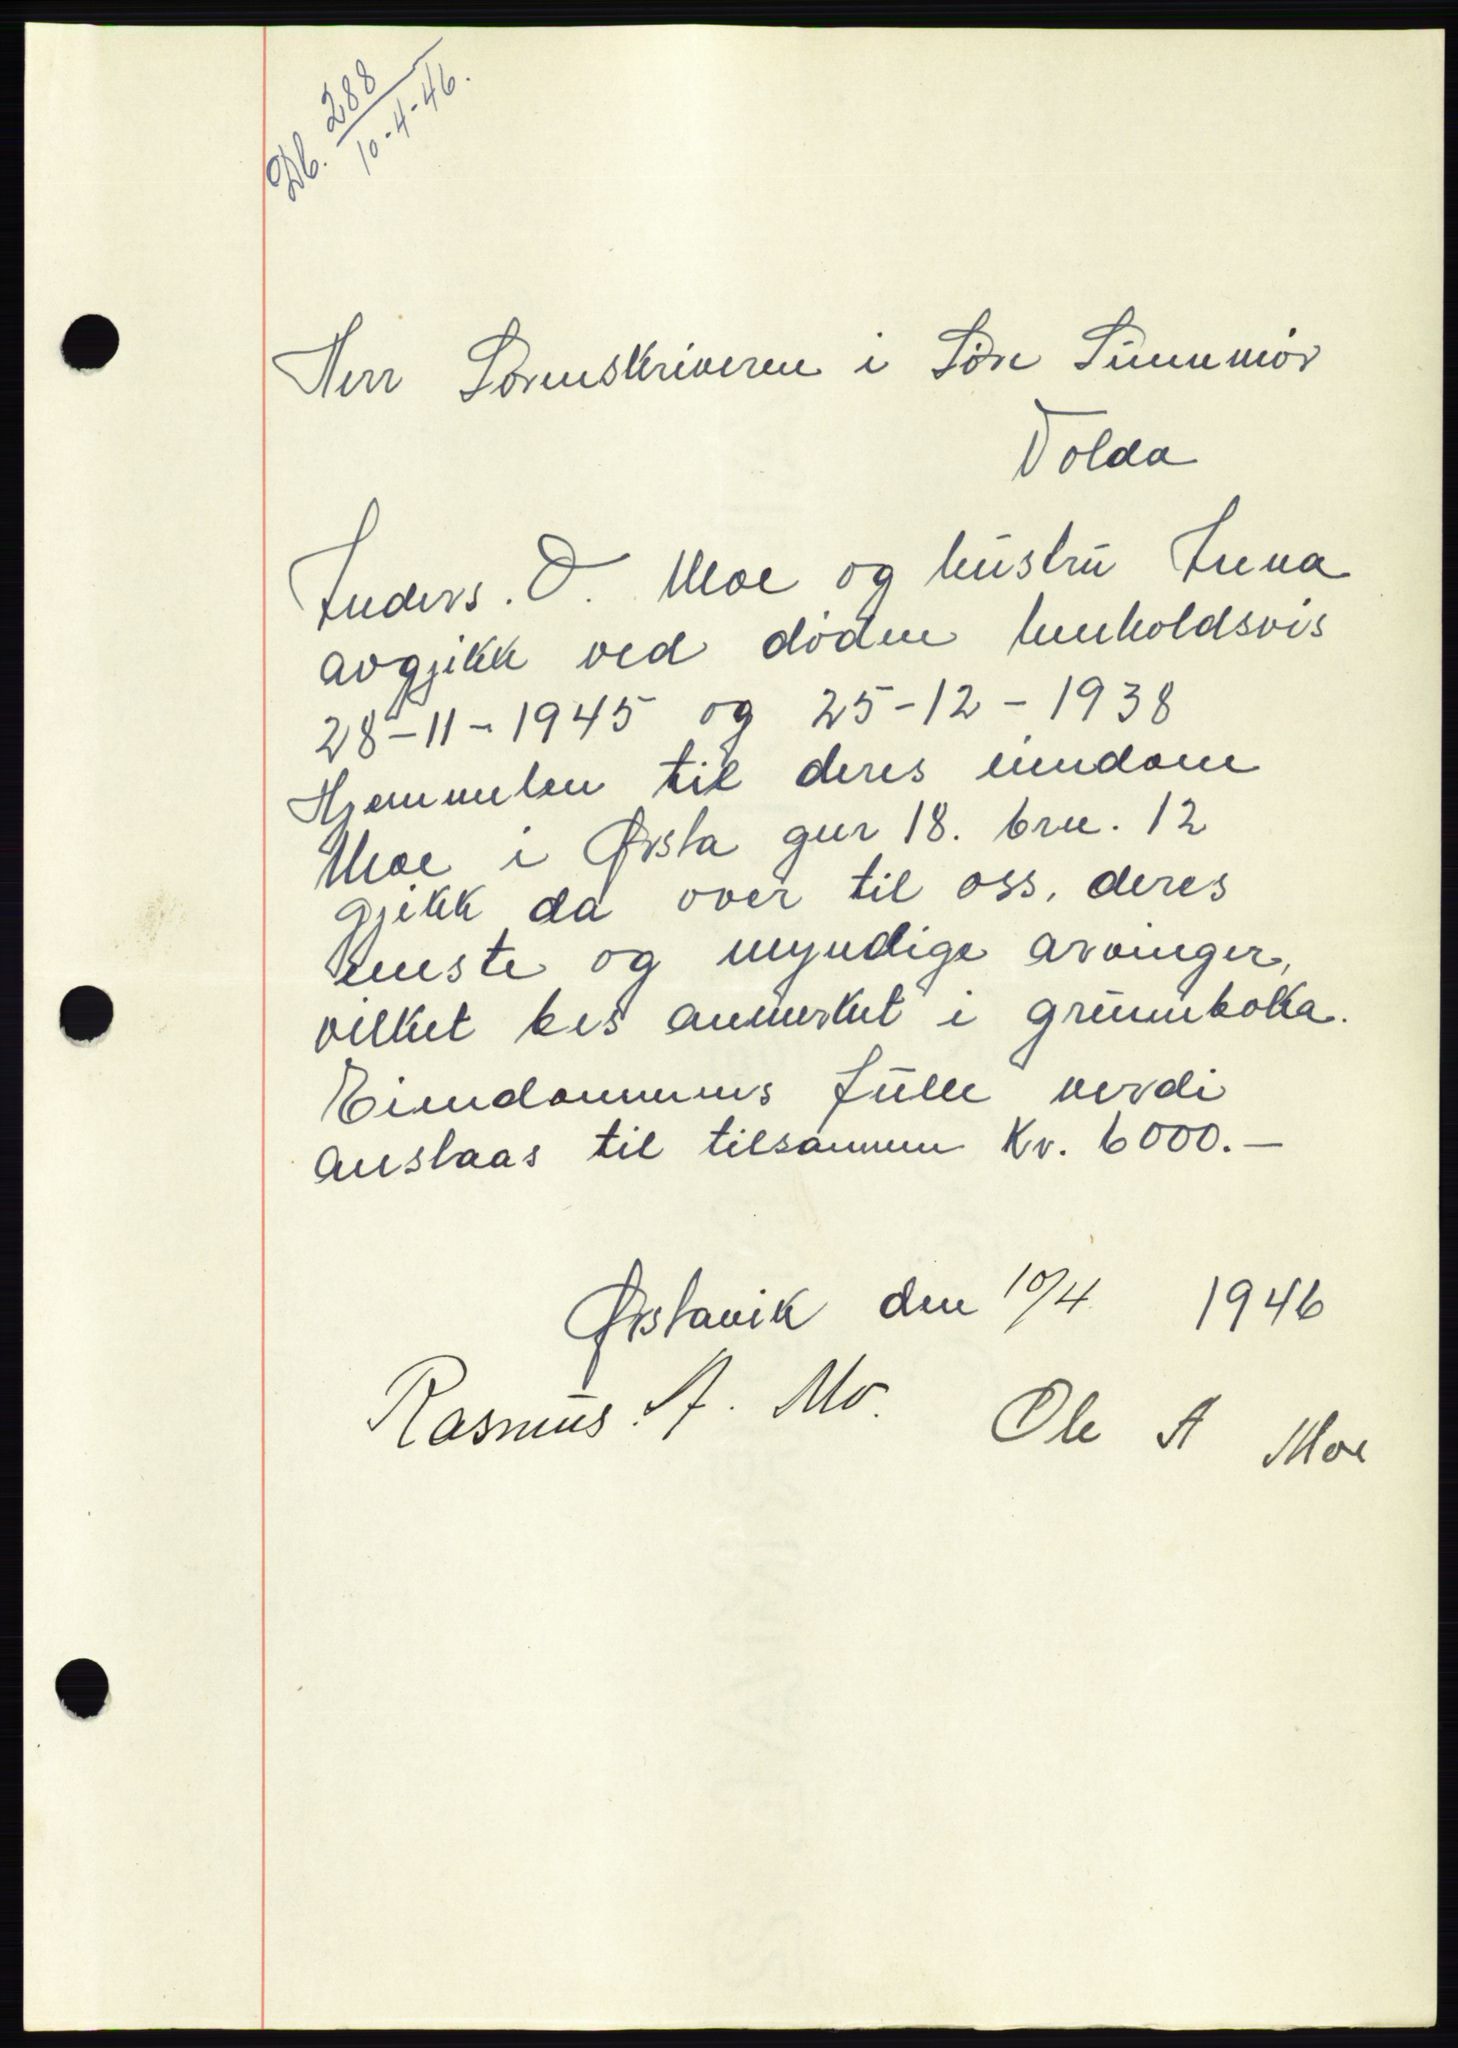 Db. 288
10-4-46.
Herr Sorenskriveren i Søre Sunnmør
Volda
Anders. O. Moe og hustru Anna
avgjikk ved døden henholdsvis
28-11-1945 og 25-12-1938
Hjemmelen til deres eiendom
Moe i Ørsta gnr 18. brn. 12
gjikk da over til oss, deres
eneste og myndige arvinger,
vilket bes anmerket i grunnboka.
Eiendommens fulle verdi
anslaas til tilsammen Kr. 6000.—
Ørstavik den 10/4 1946
Rasmus. A. Mo. Ole A Moe